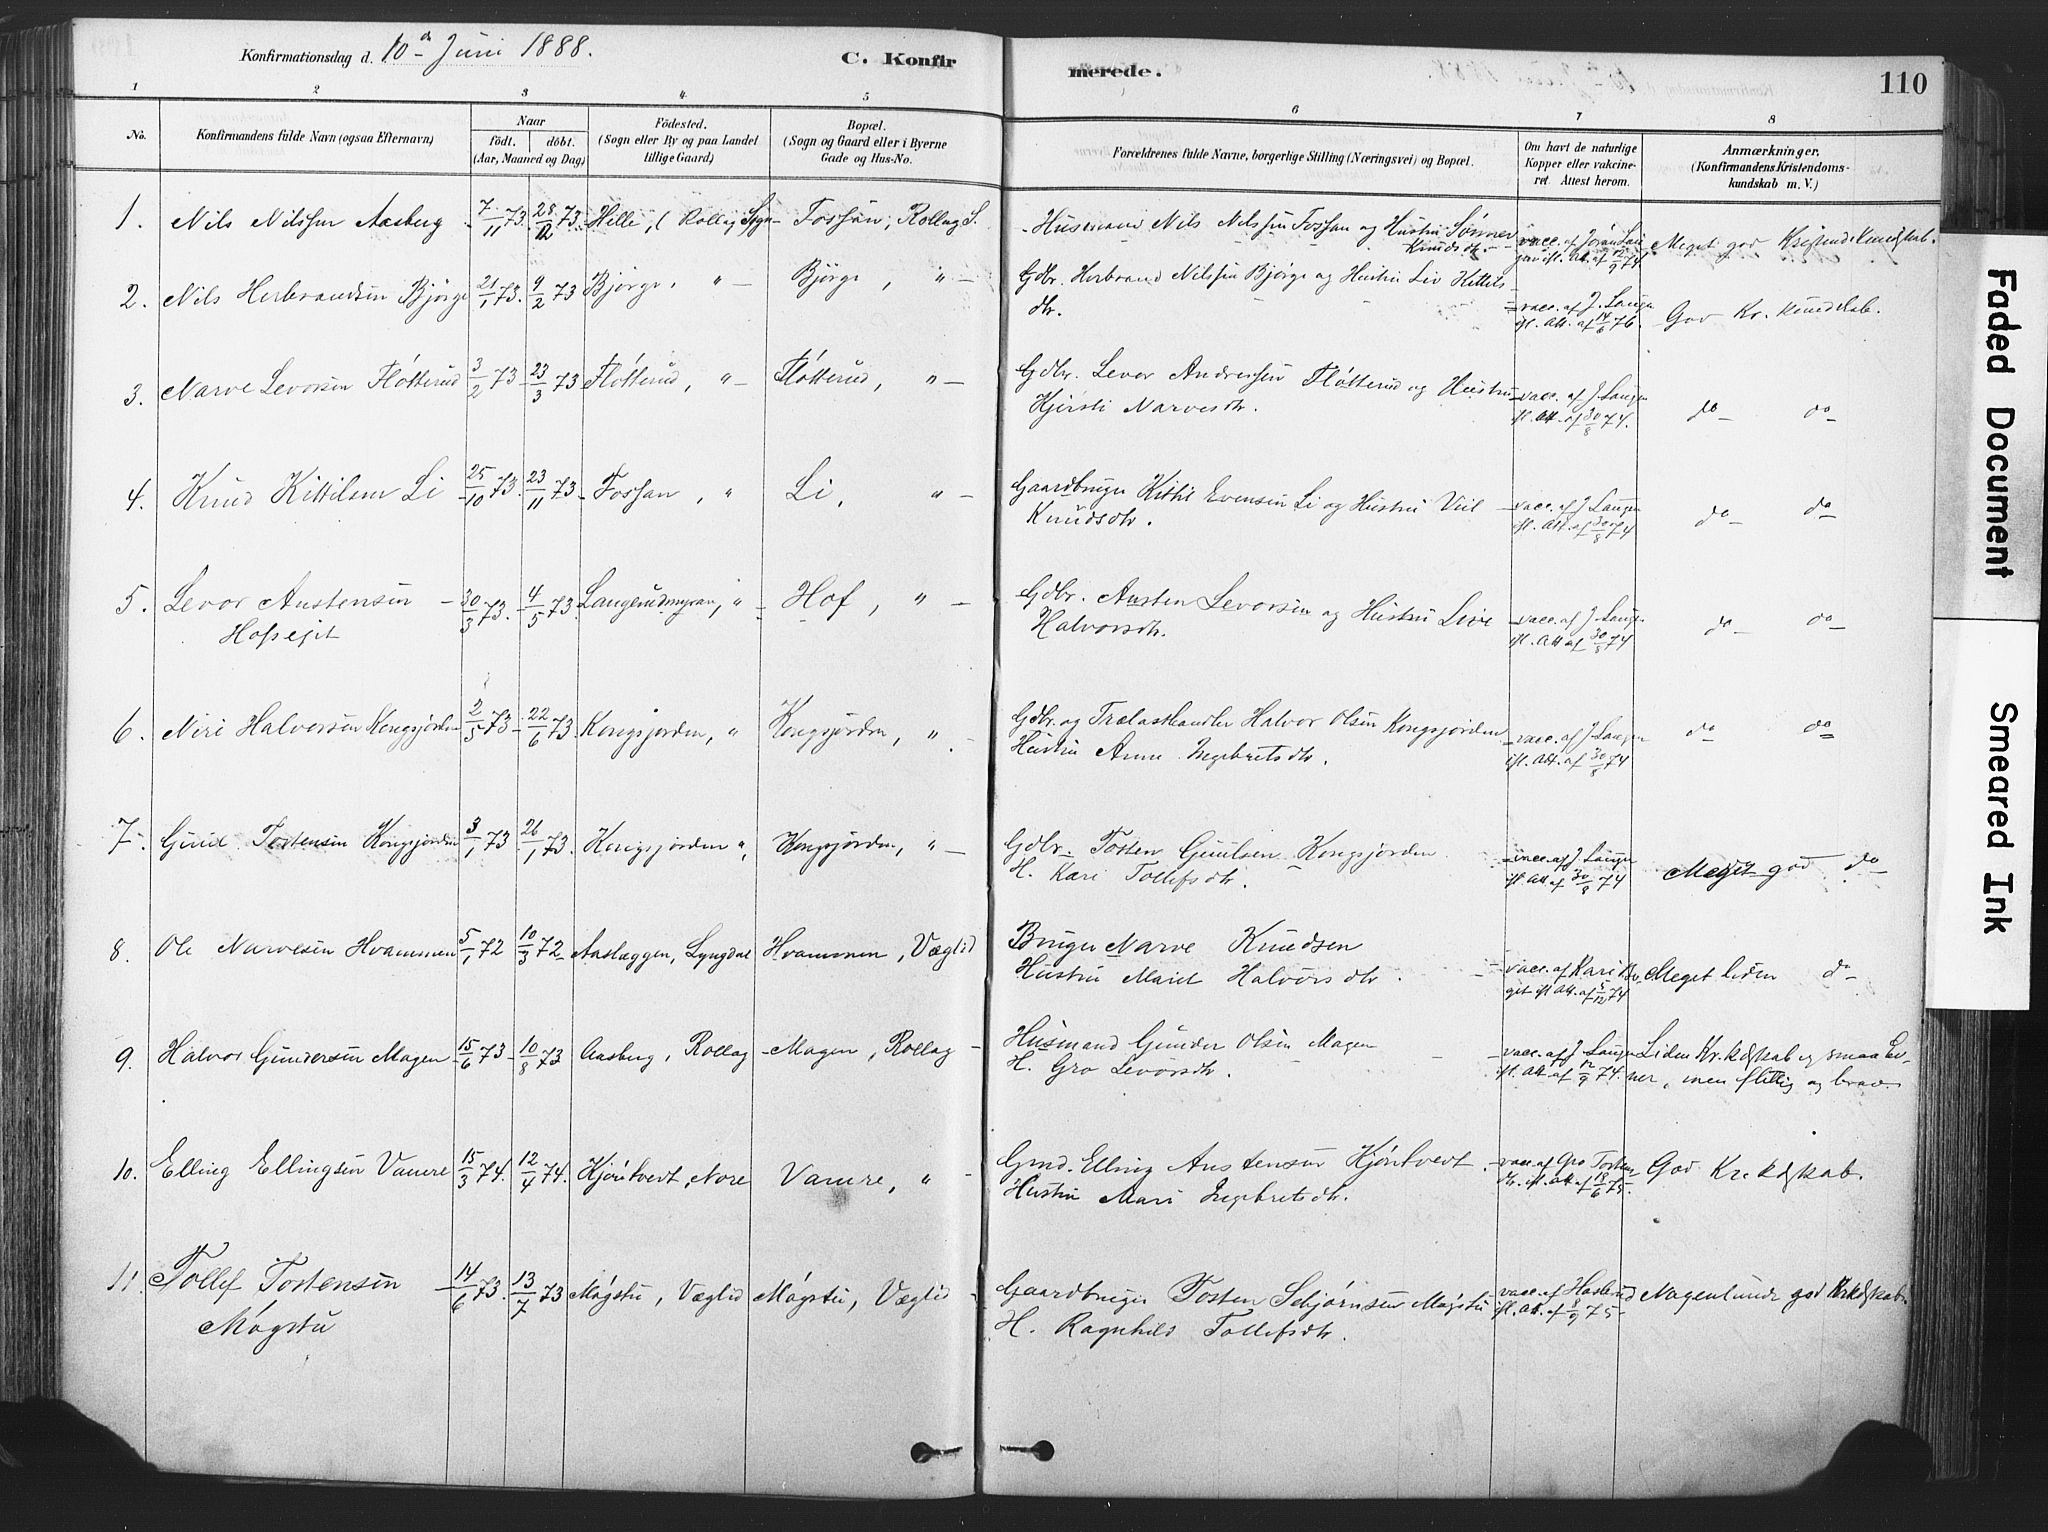 Konfirmationsdag d. 10de Juni 1888.
C. Konfirmerede.
110
1 2 3 4 5 6 7 8
No.
Konfirmandens fulde Navn (ogsaa Efternavn)
Naar
födt. döbt.
(Aar, Maaned og Dag)
Födested.
(Sogn eller By og paa Landet
tillige Gaard)
Bopæl.
(Sogn og Gaard eller i Byerne
Gade og Hus-No.
Forældrenes fulde Navne, borgerlige Stilling (Næringsvei) og Bopæl.
Om havt de naturlige
Kopper eller vakcine-
ret. Attest herom.
Anmærkninger.
(Konfirmandens Kristendoms-
kundskab m. V.)
1. Nils Nilssen Aasberg 7/11 73. 28/12 73. Helle, (Rollag Sogn Fossan, Rollag S.
Husmand Nils Nilssen Fossan og Hustru Synner
Knudsdtr. vacc. af Jøran
ifl. Att. af 12/9 74 Meget god Kristendskundskab.
2. Nils Herbrandsen Bjørge 21/1 73. 9/2 73 Bjørge, " Bjørge, "
Gbr. Herbrand Nilssen Bjørge og Hustru Liv Kittils
dtr. vacc. af J. Laugen
ifl. Att. af 14/6 76. God Kr. kundskab.
3. Narve Levorsen Fløtterud 3/2 73 23/3 73 Fløtterud, " Fløtterud, "
Gdbr. Levor Andressen Fløtterud og Hustru
Kjersti Narvesdtr. vacc. af J Laugen
ifl. Att. af 30/8 74. do do
4. Knud Kittilsen Li 25/10 73. 23/11 73 Fossan, " Li, "
Gaardbruger Kittil Evensen Li og Hustru
Knudsdtr. vacc. af J Laugen
ifl. Att. af 30/8 74 do do
5. Levor Austensen 30/3 73. 4/5 73. Langerudmyran, " Hof, "
Hofsejet
Gdbr. Austen Levorsen og Hustru Live
Halvorsdtr. vacc. af J Laugen
ifl. Att af 30/8 74 do do
6. Niri Halvorsen Kongsjorden 2/5 73 22/6 73. Kongsjorden, " Kongsjorden, "
Gdbr. og Trælasthandler Halvor Olsen Kongsjorden
Hustru Anne Ingebretsdtr. vacc. af J Laugen
ifl. Att. af 30/8 74 do do
7. Guul Tostensen Kongsjorden 3/1 73 26/1 73. Kongsjorden " Kongsjorden, "
Gdbr. Tosten Guulsen Kongsjorden
H. Kari Tollefsdtr. vacc. af J Laugen
ifl. Att af 30/8 74 Meget god do
8. Ole Narvesen Hvammen 5/1 72 10/3 72 Aaslæggen, Lyngdal Hvammen, Væglid
Bruger Narve Knudsen
Hustru Marit Halvorsdtr. vacc. af Kari
ifl. Att. af 5/12 74 Meget liden do
9. Halvor Gundersen Mogen 15/6 73 10/8 73 Aasberg, Rollag Mogen, Rollag
Husmand Gunder Olsen Mogen
H. Gro Levorsdtr. vacc. af J. Laugen
ifl. Att af 12/9 74. Liden Kr. kdskab og smaa Ev-
ner, men flittig og brav
10. Elling Ellingsen Vanere 15/3 74. 12/4 74. Kjøntvedt, Nore Vanere, "
Gmd. Elling Austensen Kjøntvedt.
Hustru Mari Ingebretsdtr. vacc. af Gro Tosten
dtr. ifl. Att af 18/6 75. God Kr. kdskab.
11. Tollef Tostensen 14/6 73. 13/7 73 Møgstu, Væglid Møgstu, Væglid
Møgstu
Gaardbruger Tosten Sebjørnsen Møgstu
H. Ragnhild Tollefsdtr. vacc. af Haslerud
ifl. Att. af 8/9 75 Nogenlunde god Kr. kdskab.
Faded Document
Smeared Ink